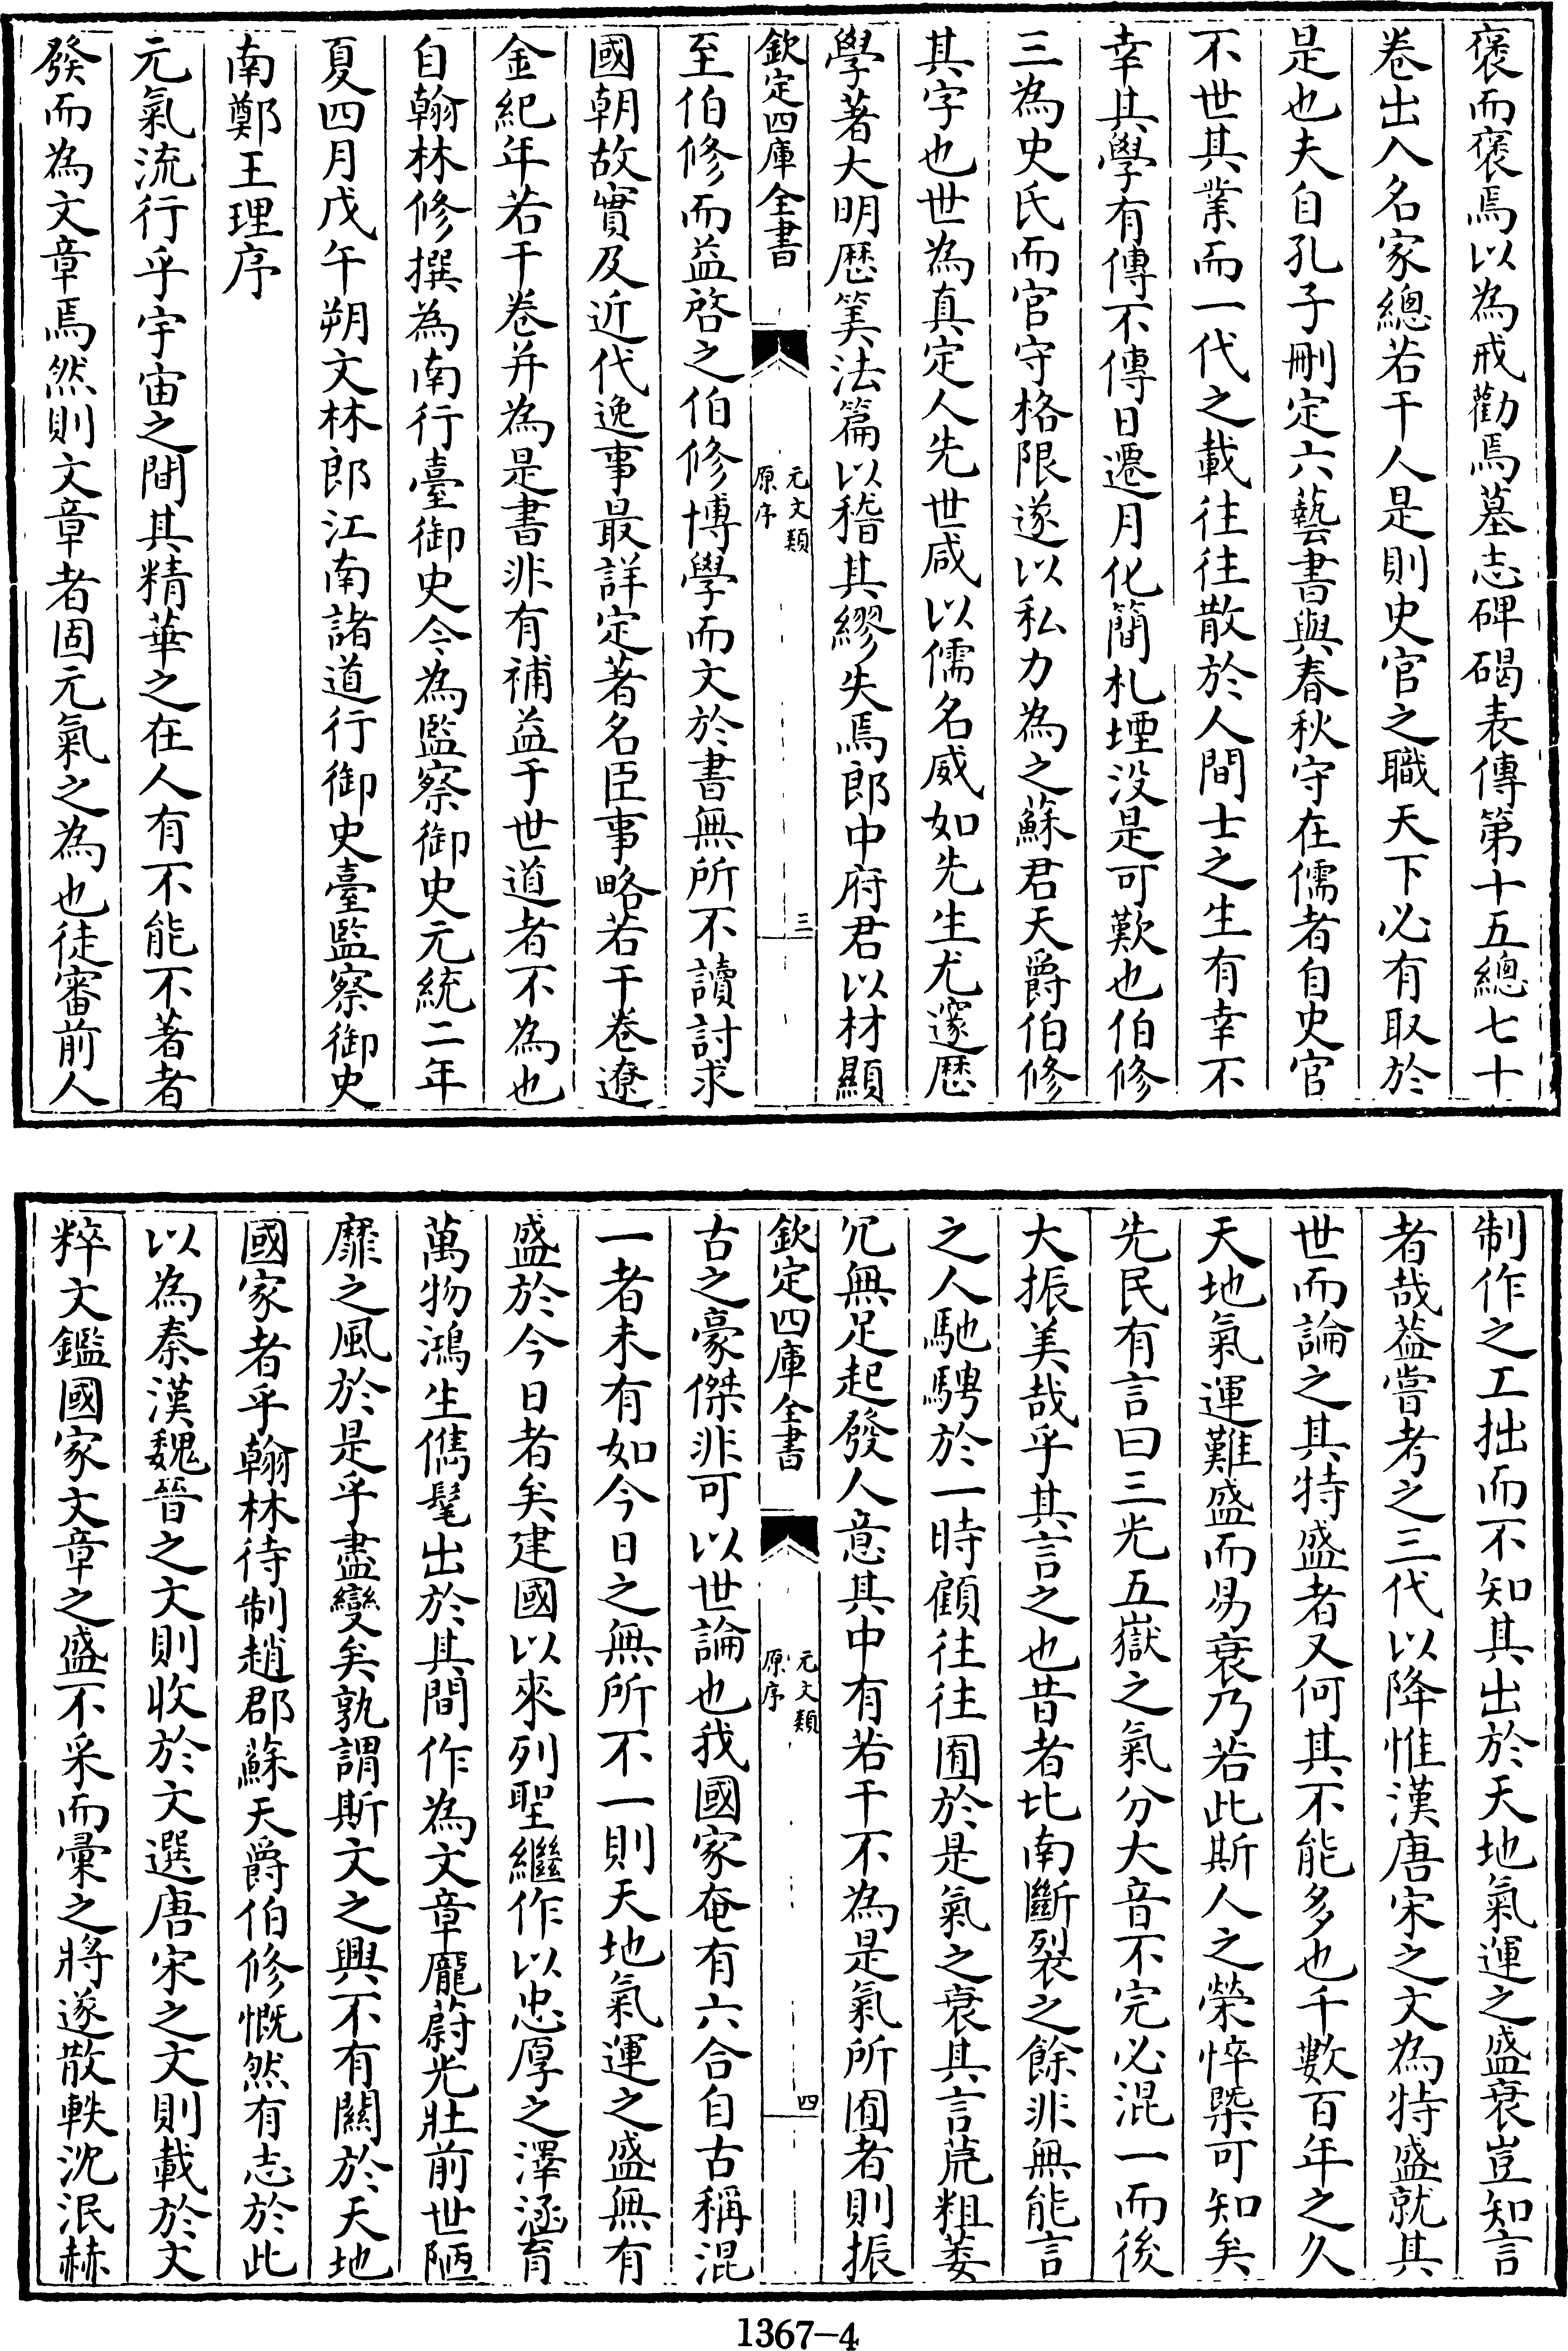 褒而褒焉以為戒勸焉墓志碑碣表傳第十五總七十
卷出入名家總若干人是則史官之職天下必有取於
是也夫自孔子刪定六藝書與春秋守在儒者自史官
不世其業而一代之載往往散於人間士之生有幸不
幸其學有傳不傳日遷月化簡札堙没是可歎也伯修
三為史氏而官守格限遂以私力為之蘇君天爵伯修
其字也世為真定人先世咸以儒名威如先生尤邃歴
學著大明歴筭法篇以稽其繆失焉郎中府君以材顯
欽定四庫全書
元文類
原序
三
至伯修而益啓之伯修博學而文於書無所不讀討求
國朝故實及近代逸事最詳定著名臣事略若干卷遼
金紀年若干卷并為是書非有補益于世道者不為也
自翰林修撰為南行臺御史今為監察御史元統二年
夏四月戊午朔文林郎江南諸道行御史臺監察御史
南鄭王理序
元氣流行乎宇宙之間其精華之在人有不能不著者
發而為文章焉然則文章者固元氣之為也徒審前人
制作之工拙而不知其出於天地氣運之盛衰豈知言
者哉葢嘗考之三代以降惟漢唐宋之文為特盛就其
世而論之其特盛者又何其不能多也千數百年之久
天地氣運難盛而易衰乃若此斯人之榮悴槩可知矣
先民有言曰三光五嶽之氣分大音不完必混一而後
大振美哉乎其言之也昔者比南斷裂之餘非無能言
之人馳騁於一時顧往往囿於是氣之衰其言荒粗萎
冗無足起發人意其中有若干不為是氣所囿者則振
欽定四庫全書
元文類
原序
四
古之豪傑非可以世論也我國家奄有六合自古稱混
一者未有如今日之無所不一則天地氣運之盛無有
盛於今日者矣建國以來列聖繼作以忠厚之澤涵育
萬物鴻生儁髦出於其間作為文章龐蔚光壯前世陋
靡之風於是乎盡變矣孰謂斯文之興不有關於天地
國家者乎翰林待制趙郡蘇天爵伯修慨然有志於此
以為秦漢魏晉之文則收於文選唐宋之文則載於文
粹文鑑國家文章之盛不采而彚之將遂散軼沈泯赫
1367-4